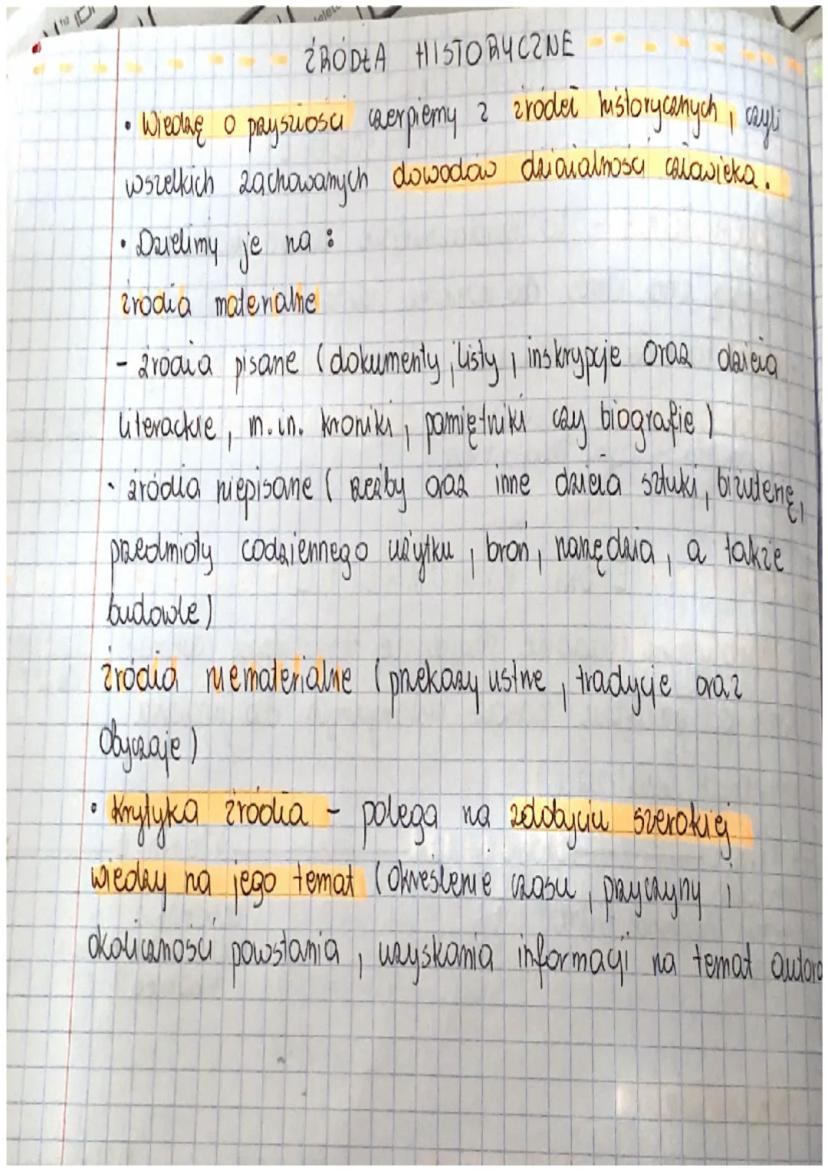 ŹRÓDŁA HISTORYCZNE
• Wiedzę o przyszłości czerpiemy z źródeł historycznych, czyli
wszelkich zachowanych dowodów działalności człowieka.
• Dzielimy je na:
źródła materialne
- źródła pisane (dokumenty, listy, inskrypcje oraz dzieła
literackie, m.in. kroniki, pamiętniki czy biografie)
- źródła niepisane (rzeźby oraz inne dzieła sztuki, biżuterię,
przedmioty codziennego użytku, broń, narzędzia, a także
budowle)
źródła niematerialne (przekazy ustne, tradycje oraz
obyczaje)
• Krytyka źródła - polega na zdobyciu szerokiej
wiedzy na jego temat (określenie czasu, przyczyny i
okoliczności powstania, uzyskania informacji na temat autora